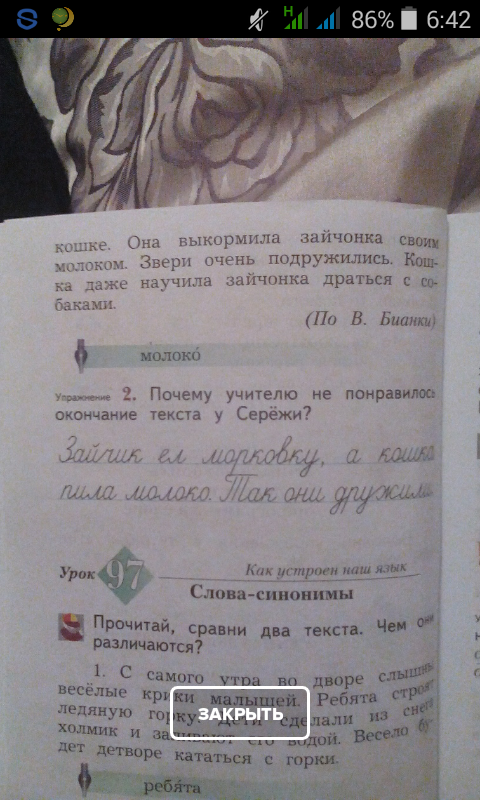 S
H
86% 6:42
кошке. Она выкормила зайчонка своим
молоком. Звери очень подружились. Кош-
ка даже научила зайчонка драться с со-
баками.
(По В. Бианки)
молоко́
Упражнение 2. Почему учителю не понравилось
окончание текста у Серёжи?
Зайчик ел морковку, а кошка
пила молоко. Так они дружили.
Урок 97 Как устроен наш язык
Слова-синонимы
Прочитай, сравни два текста. Чем они
различаются?
1. С самого утра во дворе слышны
весёлые крики малышей. Ребята строят
ледяную горку. Дети сделали из снега
холмик и заливают его водой. Весело бу-
дет детворе кататься с горки.
ЗАКРЫТЬ
ребя́та